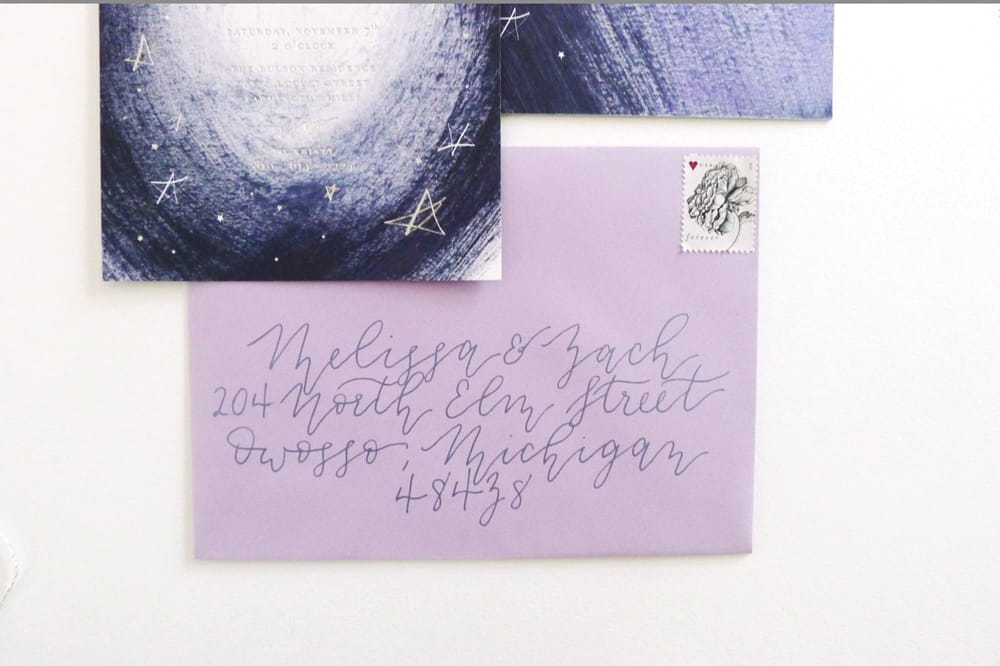 SATURDAY, NOVEMBER 7TH
2 O'CLOCK
THE RESIDENCE
LOCUST STREET
FARMINGTON HILLS
USA
forever
Melissa & Zach
204 North Elm Street
Owosso, Michigan
48438